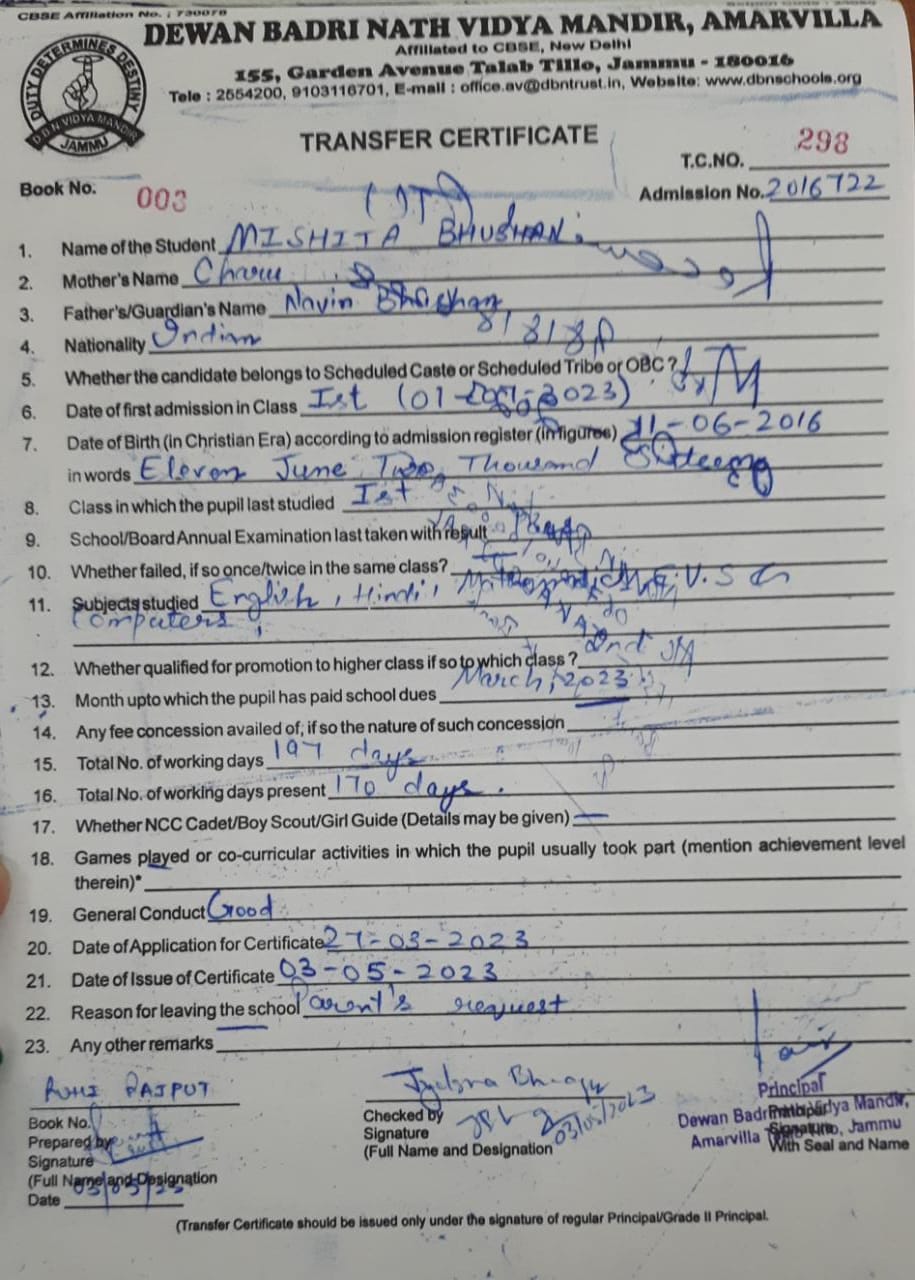 CBSE Affiliation No. : 730078
DEWAN BADRI NATH VIDYA MANDIR, AMARVILLA
Affiliated to CBSE, New Delhi
155, Garden Avenue Talab Tillo, Jammu - 180016
Tele : 2554200, 9103116701, E-mail : office.av@dbntrust.in, Website: www.dbnschools.org
DUTY DETERMINES DESTINY
D.B.N VIDYA MANDIR
JAMMU
TRANSFER CERTIFICATE
T.C.NO. 298
Book No. 003
Admission No. 2016722
1. Name of the Student MISHITA BHUSHAN
2. Mother's Name Charu
3. Father's/Guardian's Name Navin Bhushan
4. Nationality Indian
5. Whether the candidate belongs to Scheduled Caste or Scheduled Tribe or OBC ?
6. Date of first admission in Class Ist (01- -2023)
7. Date of Birth (in Christian Era) according to admission register (in figures) 11-06-2016
in words Eleven June Two Thousand Sixteen
8. Class in which the pupil last studied Ist
9. School/Board Annual Examination last taken with result
10. Whether failed, if so once/twice in the same class?
11. Subjects studied English, Hindi, E.V.S
Computers
12. Whether qualified for promotion to higher class if so to which class ? 2nd
13. Month upto which the pupil has paid school dues March, 2023
14. Any fee concession availed of; if so the nature of such concession
15. Total No. of working days 197 days
16. Total No. of working days present 170 days.
17. Whether NCC Cadet/Boy Scout/Girl Guide (Details may be given) —
18. Games played or co-curricular activities in which the pupil usually took part (mention achievement level
therein)*
19. General Conduct Good
20. Date of Application for Certificate 27-03-2023
21. Date of Issue of Certificate 03-05-2023
22. Reason for leaving the school Parent's request
23. Any other remarks
RUHI RAJPUT
Book No.
Prepared by
Signature
(Full Name and Designation
Date 03/05/23
Checked by
Signature
03/05/2023
(Full Name and Designation
Principal
Dewan Badri Nath Vidya Mandir,
Amarvilla Jammu
Principal
Signature
With Seal and Name
(Transfer Certificate should be issued only under the signature of regular Principal/Grade II Principal.